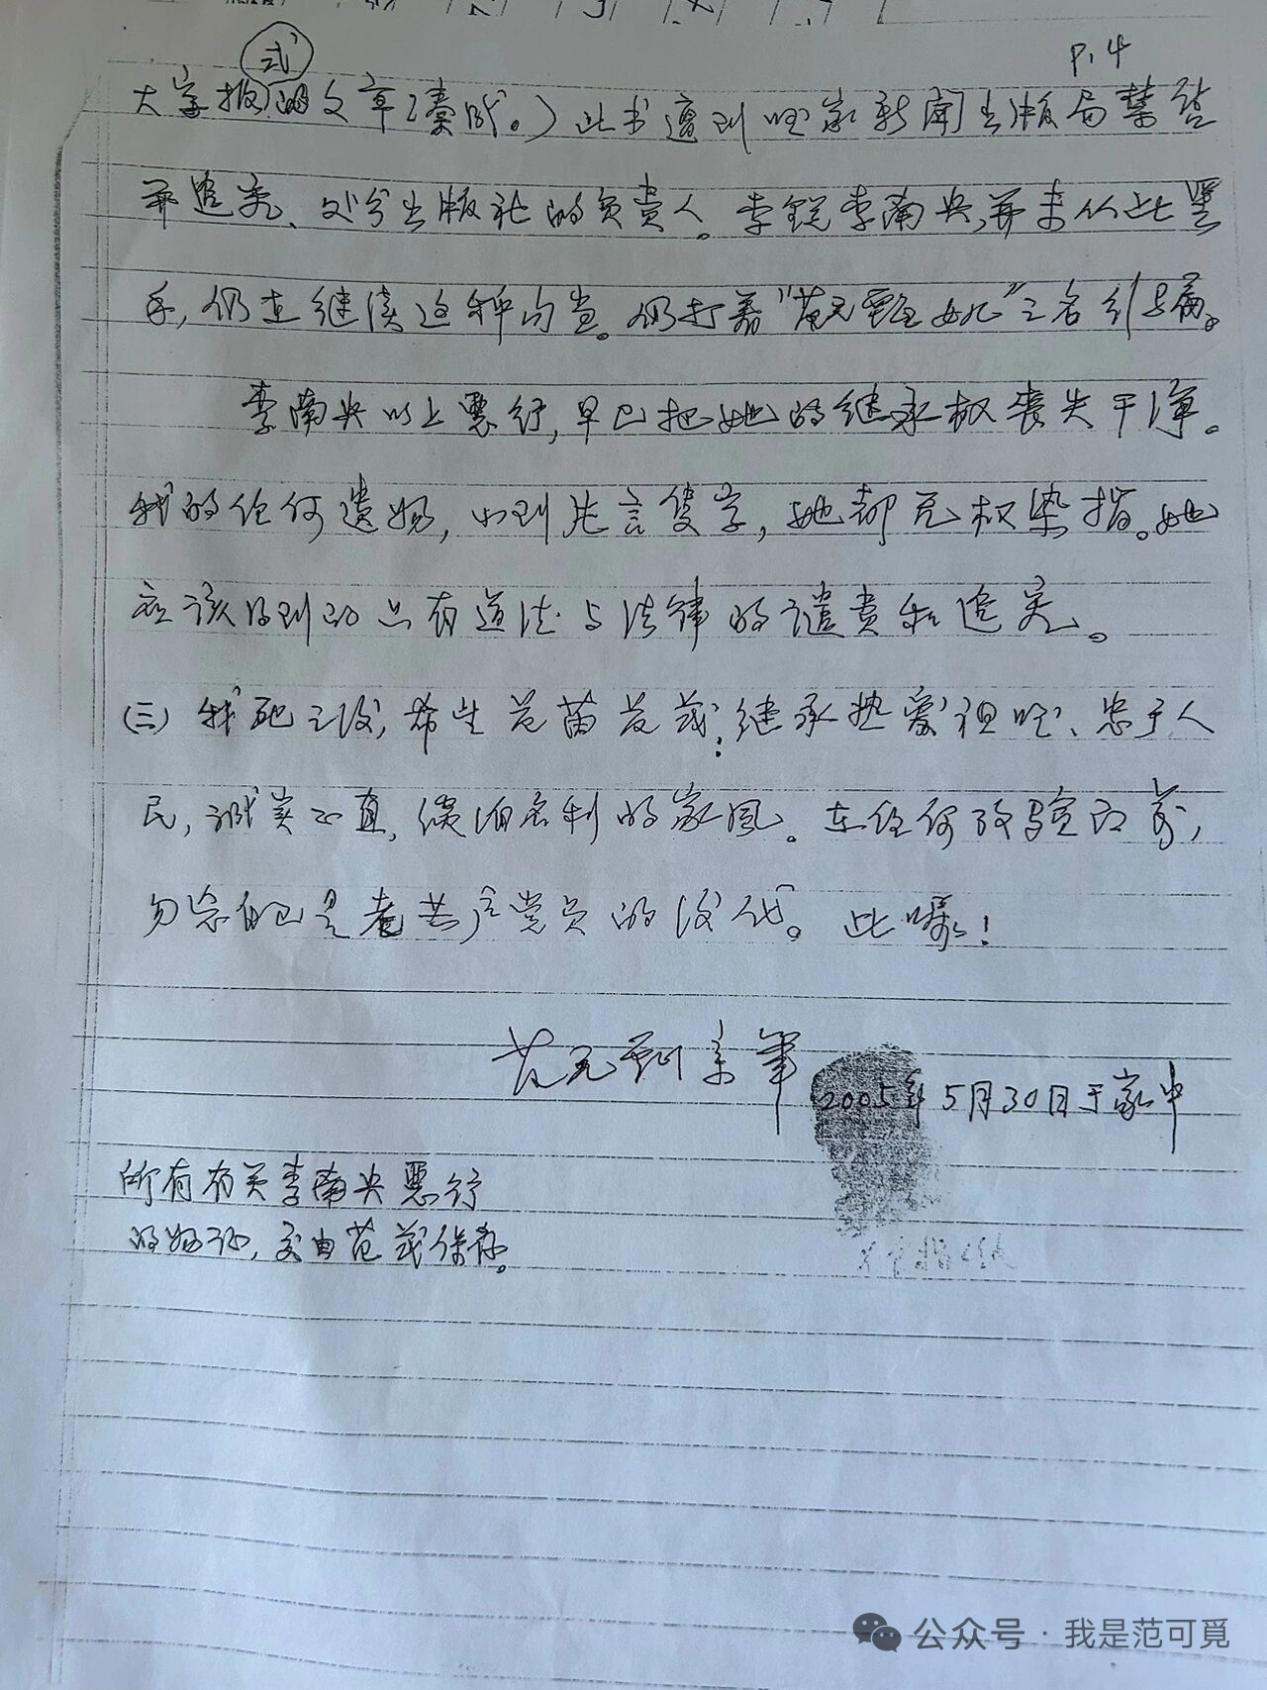 P.4
式
大字报的文章凑成。）此书遭到国家新闻出版局禁售
并追究、处分出版社的负责人。李锐李南央，并未从此罢
手，仍在继续这种勾当。仍打着“范元甄女儿”之名引路。
李南央以上恶行，早已把她的继承权丧失干净。
我的任何遗物，小到片言隻字，她都无权染指。她
应该得到的只有道法与法律的谴责和追究。
（三）我死之后，希望范苗范茂：继承热爱祖国、忠于人
民，诚实正直，淡泊名利的家风。在任何考验面前，
勿忘自己是老共产党员的后代。此嘱！
范元甄亲笔
2005年5月30日于家中
所有有关李南央恶行
的物证，交由范茂保存。
公众号·我是范可觅